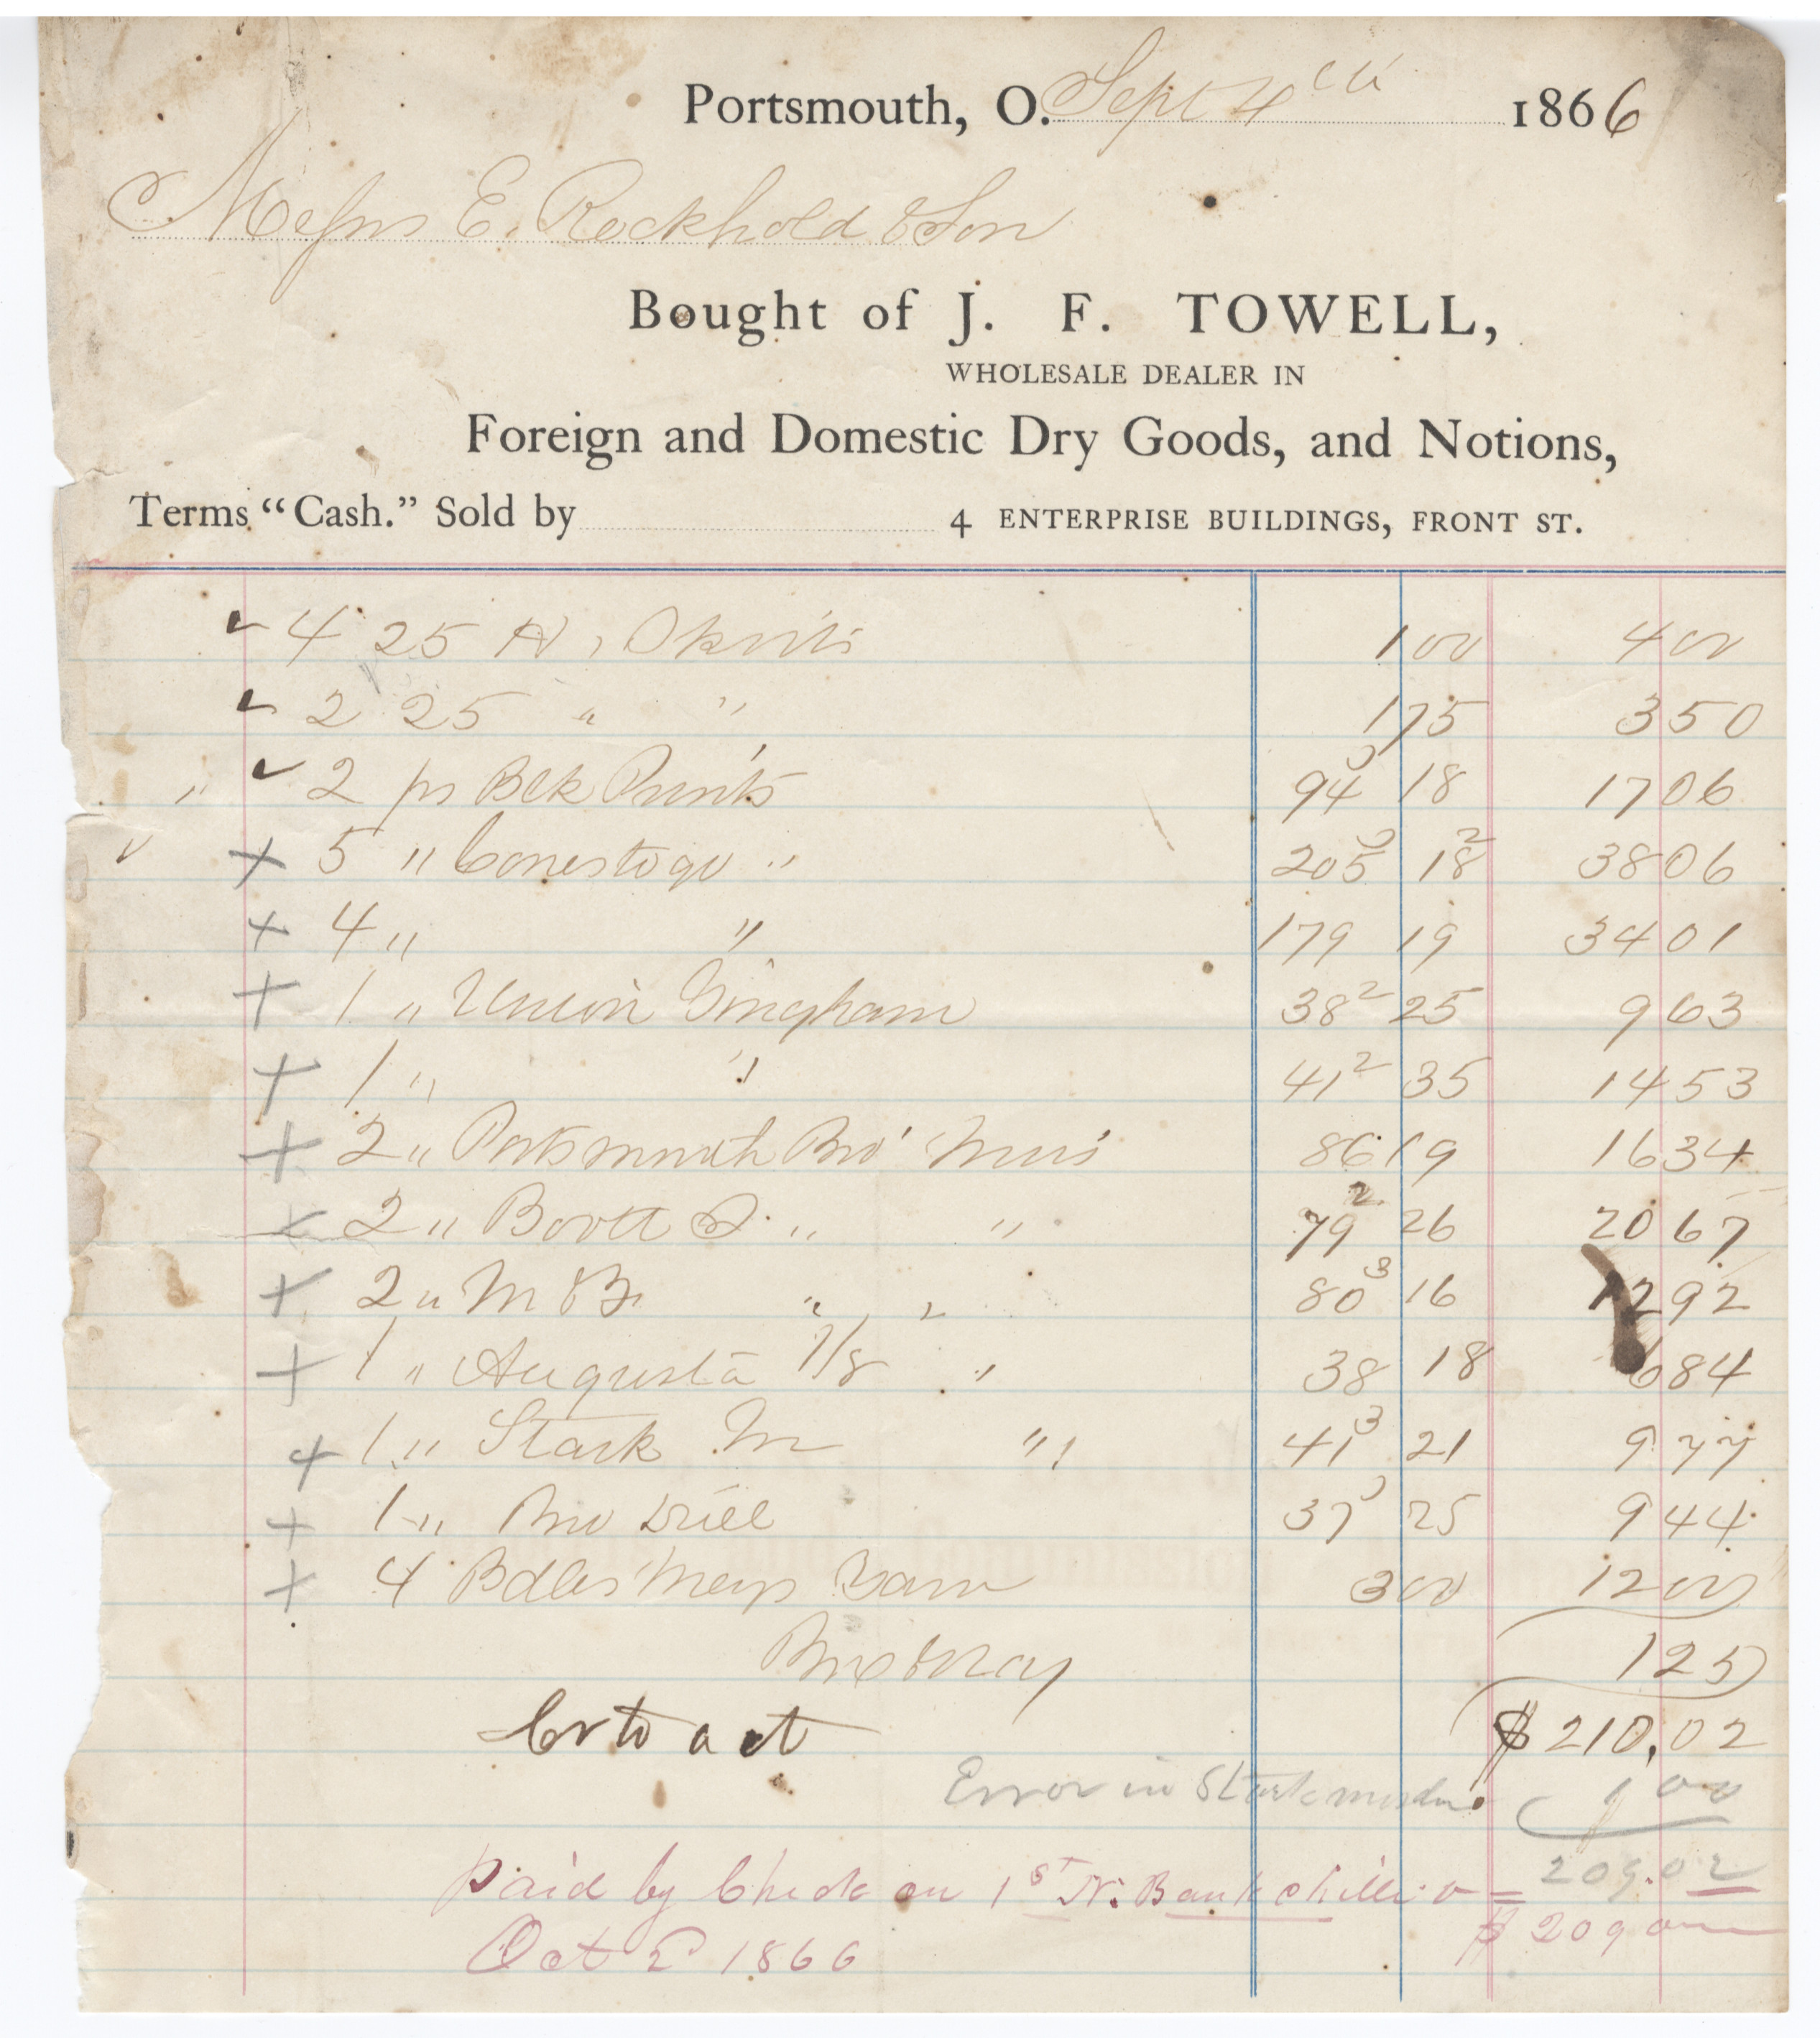 Portsmouth, O. Sept 4th 1866
Messrs E. Rockhold & Son
Bought of J. F. TOWELL,
WHOLESALE DEALER IN
Foreign and Domestic Dry Goods, and Notions,
Terms "Cash." Sold by 4 ENTERPRISE BUILDINGS, FRONT ST.
4 25 H. Skirts 1 00 4 00
2 25 " " 1 75 3 50
2 ps Blk Prints 94 3 18 17 06
5 " Conestogo " 205 3 18 2 38 06
4 " " 179 19 34 01
1 " Union Gingham 38 2 25 9 63
1 " " 41 2 35 14 53
2 " Portsmouth Bro' Mus 86 19 16 34
2 " Boott S. " " 79 2 26 20 67
2 " M & B " " 80 3 16 12 92
1 " Augusta 7/8 " " 38 18 6 84
1 " Stark " 41 3 21 9 77
1 " Bro Drill 37 3 25 9 44
4 Bdles Yarn 3 00 12 00
Box & Dray 1 25
Cr to act $ 210.02
Error in Stark muslin 1 00
209.02
Paid by Check on 1st N. Bank Chilli. o = $ 209
Oct 2 1866